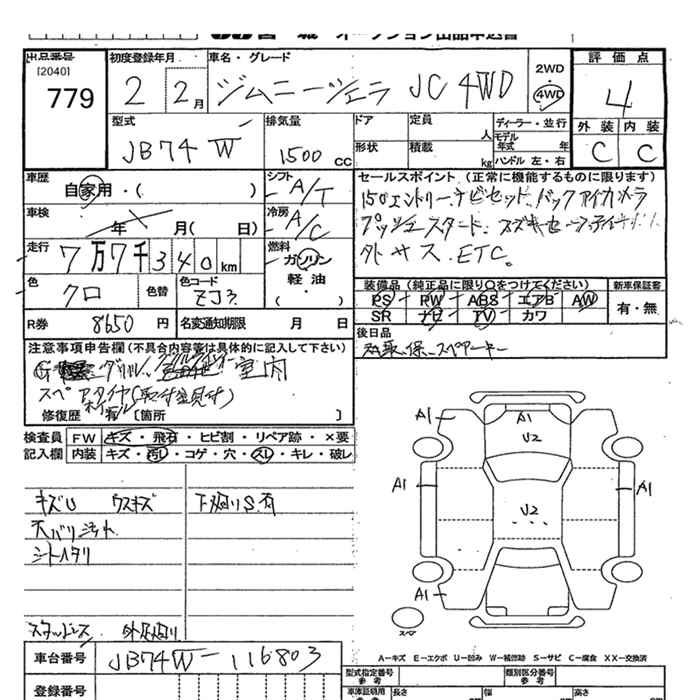 出品番号
[2040]
779
初度登録年月
2 2月
車名・グレード
ジムニーシエラ JC 4WD
2WD
4WD
評価点
4
外装 内装
C C
型式
JB74W
排気量
1500 cc
ドア
形状
定員
人
積載
kg
ディーラー・並行
モデル
年式 年
ハンドル 左・右
車歴
自家用・( )
シフト
A/T
車検
年 月( 日)
冷房
A/C
走行
7万7千340km
燃料
ガソリン
軽油
( )
色
クロ
色替
色コード
ZJ3
R券
8650円
名変通知期限
月 日
セールスポイント (正常に機能するものに限ります)
プッシュスタート、
ETC。
装備品(純正品に限り○をつけてください)
PS PW ABS エアB AW
SR ナビ TV カワ
新車保証書
有・無
後日品
注意事項申告欄(不具合内容等は具体的に記入して下さい)
室内
修復歴 [箇所 ]
検査員
記入欄
FW キズ・飛石・ヒビ割・リペア跡・×要
内装 キズ・汚レ・コゲ・穴・スレ・キレ・破レ
キズU ウスキズ
下廻りS有
天バリ汚れ
シートヘタリ
スタッドレス
A1
A1
U2
A1
A1
U2
A1
スペア
A－キズ E－エクボ U－凹み W－補修跡 S－サビ C－腐食 XX－交換済
車台番号
JB74W-116803
登録番号
型式指定番号
参考
類別区分番号
参考
車庫証明用
参考
長さ
cm
幅
cm
高さ
cm